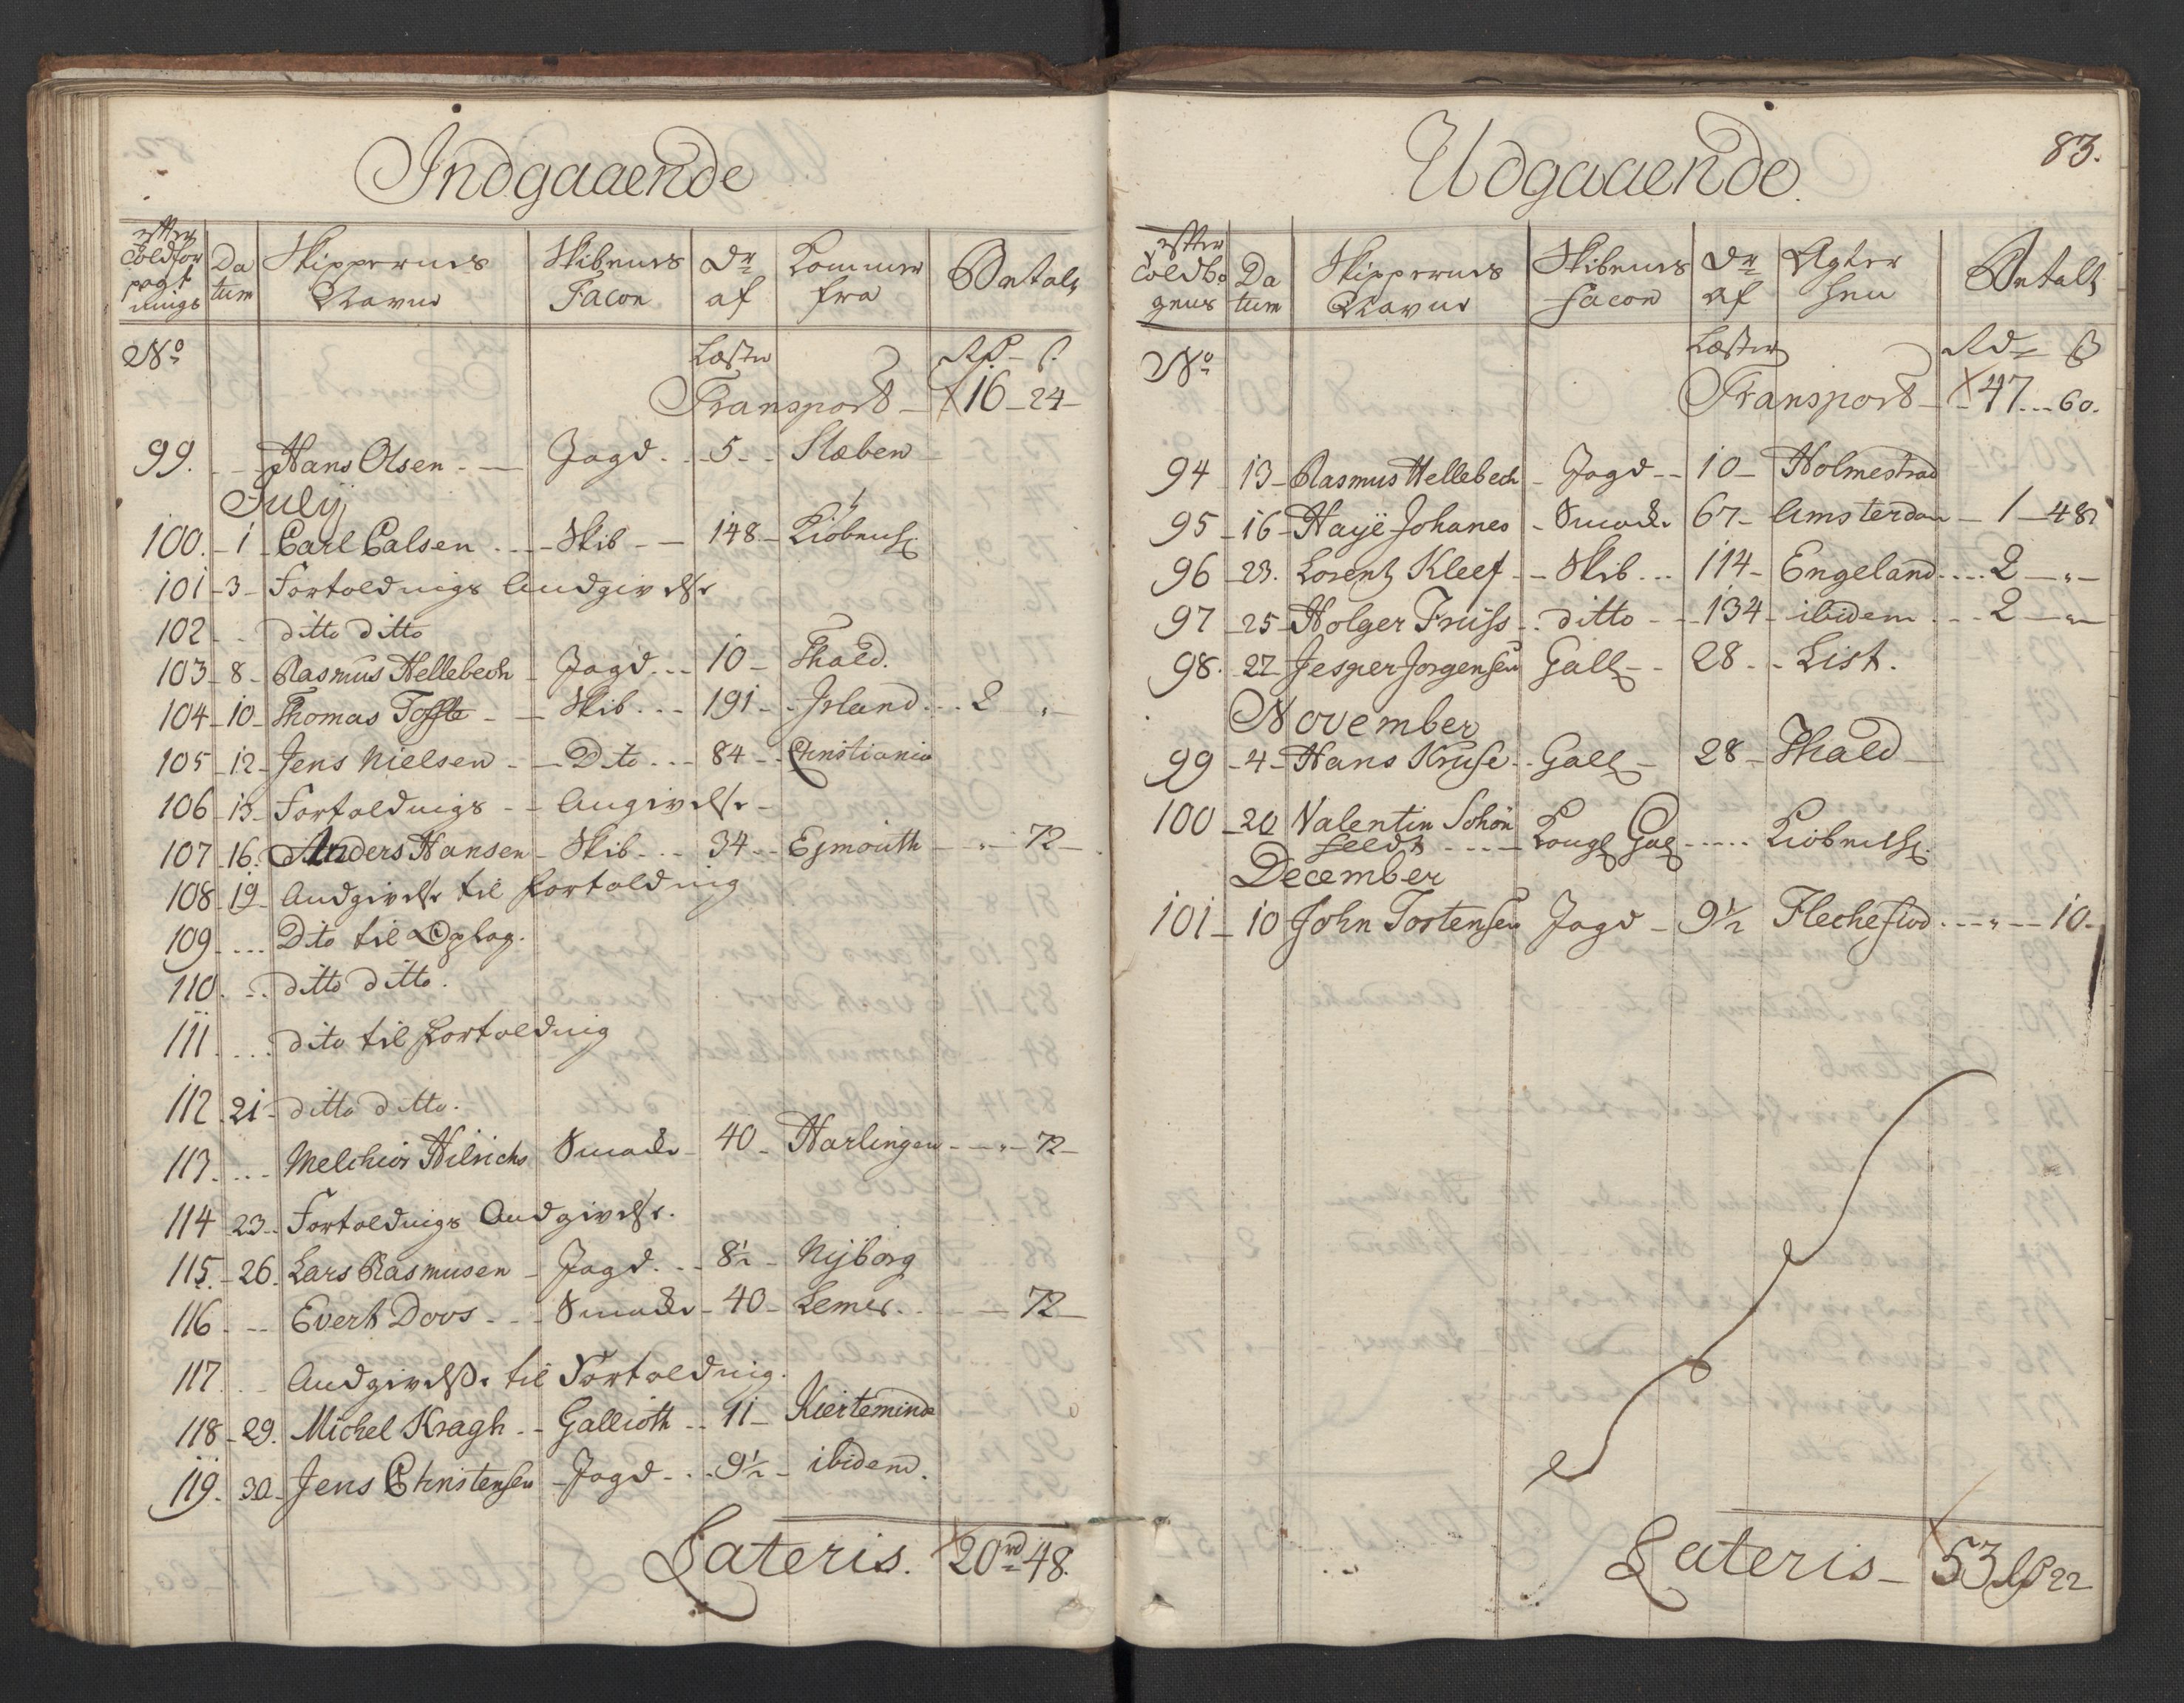 Indgaaende
efter Toldfor pagt nings | Da tum | Skippernes Navne | Skibenes Facon | Dr. af | Kommer fra | Betalt
No | Læster | Rd ß
Transport - 16 - 24 -
99. - - Hans Olsen - - Jagd - - 5 - - Staben
July
100. - 1 - Carl Calsen - - Skib - - 148 - Kiøbenh
101 - 3 - Fortoldnings Andgivelse
102 - - ditto ditto
103 - 8 - Rasmus Hellebech - Jagd - - 10 - Fhald.
104 - 10 - Thomas Toffte - - Skib - - 191 - Irland - - 2 - " -
105 - 12 - Jens Nielsen - - Dito - - 84 - - Christiania
106 - 15 - Fortoldnings - - Angivelse -
107 - 16. Anders Hansen - Skib - - 34 - - Exmouth - " - 72 -
108 - 19 - Andgivelse til Fortoldning
109 - - Dito til Oplag.
110. - - ditto ditto.
111 - - dito til Fortoldning
112 - 21 - ditto ditto.
113. - - Melchior Hilrichs Smacke - 40 - Harlingen - " - 72 -
114 23 - Fortoldnings Andgivelse.
115. - 26. Lars Rasmusen - Jagd - - 8½ - Nyborg
116 - - Evert Doos - - Smacke - 40 - Lemer. - - 72 -
117 - - Andgivelse til Fortoldning.
118 - 29. Michel Kragh - - Gallioth - - 11 - Kierteminde
119. 30 - Jens Christensen - Jagd - - 9½ - ibidem.
Lateris. 20 rd 48.
83.
Udgaaende.
efter Toldbo gens | Da tum | Skippernes Navne | Skibenes facon | Dr. af | Agter hen | Betalt
No | Læster | Rd ß
Transport - 47 - - 60.
94 13 - Rasmus Hellebech - Jagd - - 10 - Holmestrad
95 - 16 - Haye Johanes - Smacke 67 - Amsterdam - 1 - 48
96 - 23. Lorentz Kleef - - Skib - - 114 - Engeland - - 2 - " -
97 - 25 - Holger Friiss - - ditto - - 134 - ibidem - - 2 - " -
98. - 27 - Jesper Jorgensen Gall - - 28 - - List.
November
99 - 4 - Hans Kruse - - Gall - 28 - Fhald -
100 - 20 Valentin Schön
feldt - - - Kongl Gal - - - Kiøbenh.
December
101 - 10 John Tostensen Jagd - 9½ Flechefiord - - " - - 10 -
Lateris - 53 Rd 22